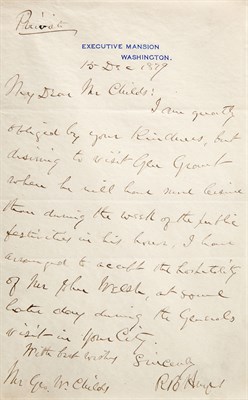 Private
EXECUTIVE MANSION
WASHINGTON.
15 Dec 1879
My Dear Mr Childs:
I am greatly
obliged by your kindness, but
desiring to visit Gen Grant
when he will have more leisure
than during the week of the public
festivities in his honor, I have
arranged to accept the hospitality
of Mr John Welsh, at some
later day during the Generals
visit in Your City.
With best wishes
Sincerely
R B Hayes
Mr Geo. W. Childs